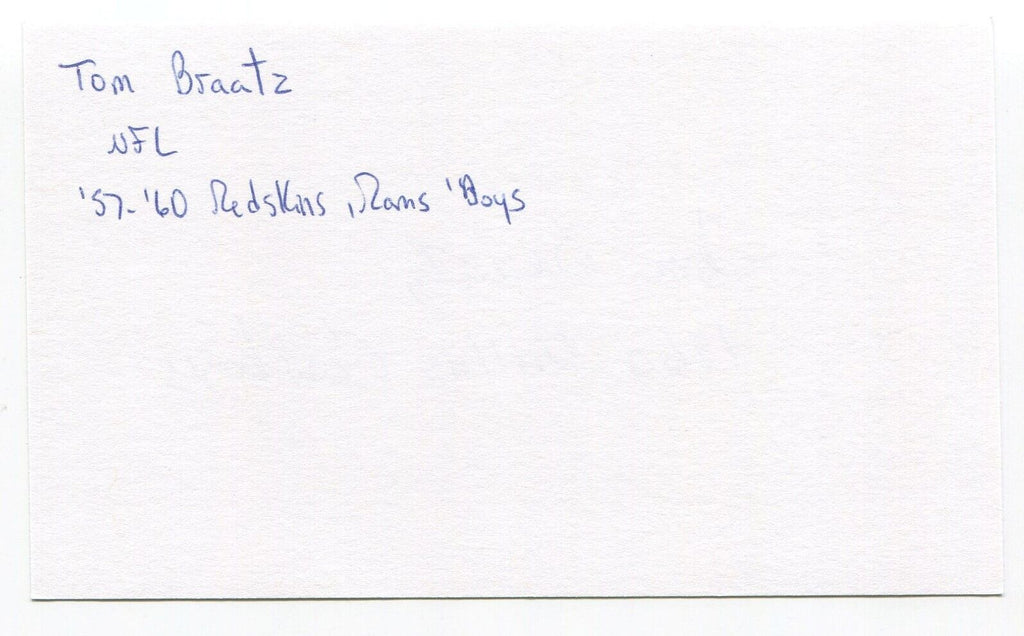 Tom Braatz
NFL
'57-'60 Redskins, Rams 'Boys